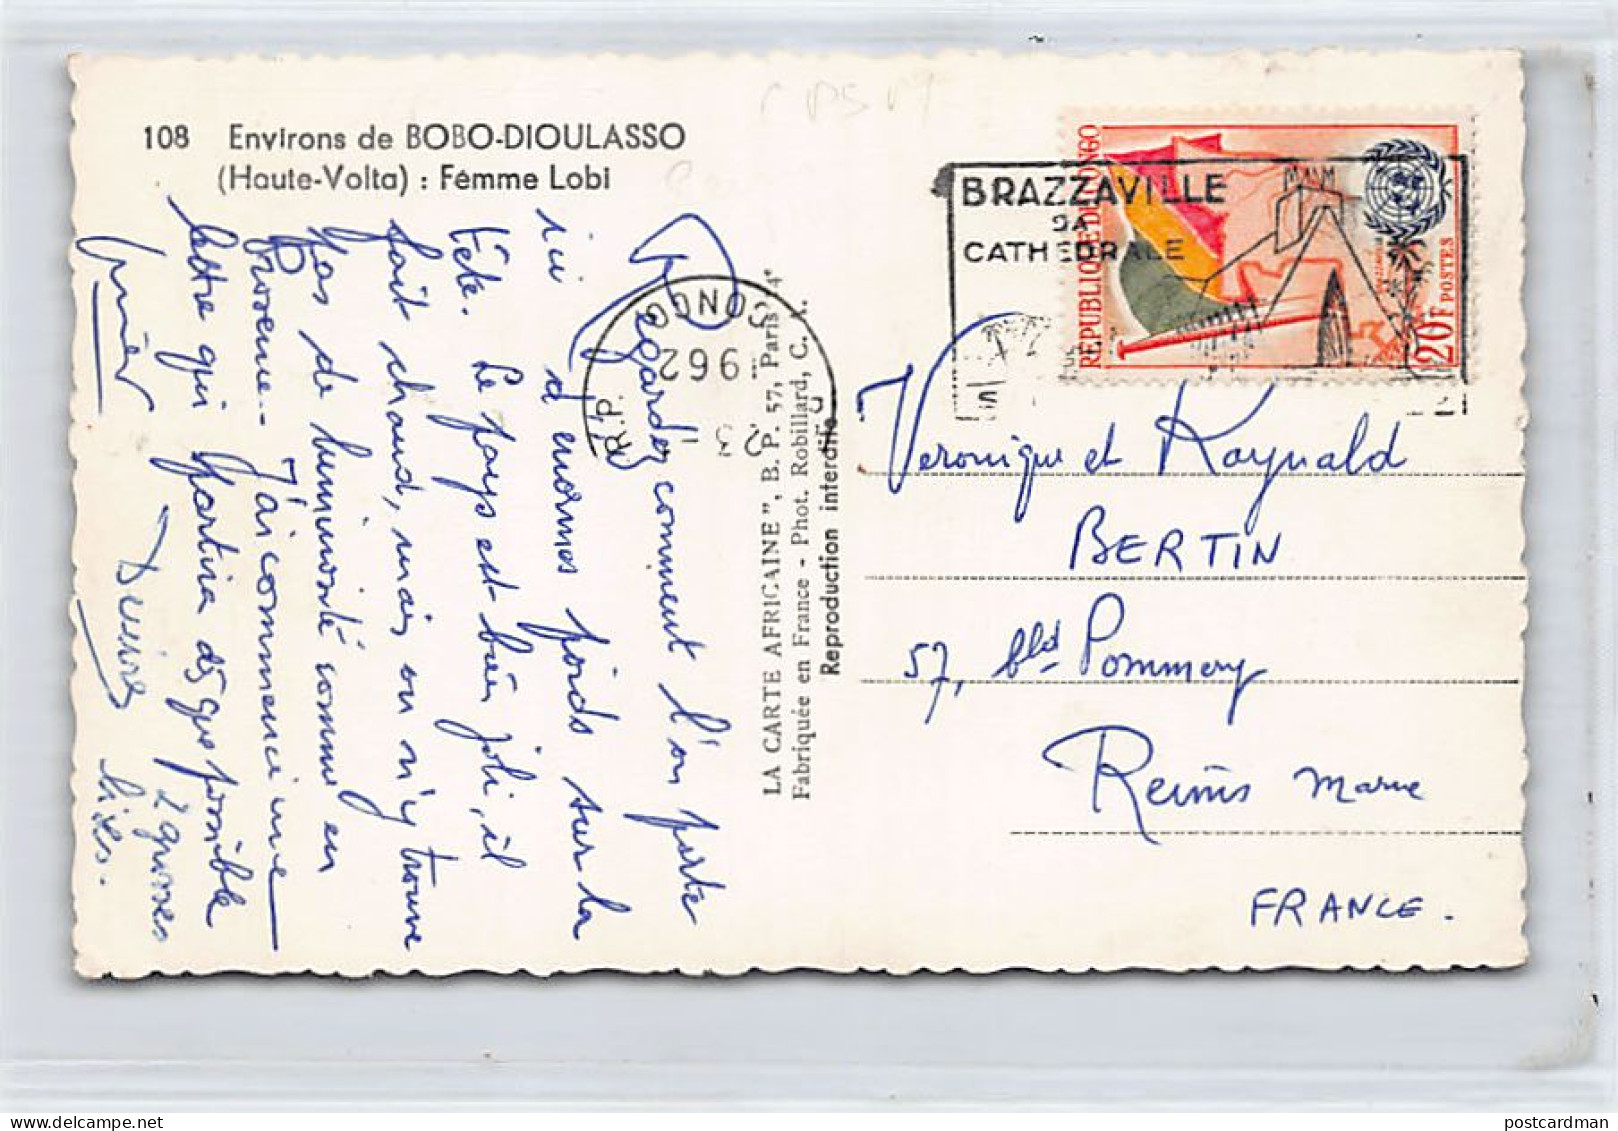 108 Environs de BOBO-DIOULASSO
(Haute-Volta) : Fémme Lobi
Regardez comment l'on porte
ici d'énormes poids sur la
tête. Le pays est bien joli, il
fait chaud, mais on n'y trouve
pas de luminosité comme en
Provence.. J'ai commencé une
lettre qui partira dès que possible
2 grosses
bises.
LA CARTE AFRICAINE", B. P. 57, Paris 4e
Fabriquée en France - Phot. Robillard, C. A.
Reproduction interdite
R.P.
CONGO
23
1
962
BRAZZAVILLE
SA
CATHEDRALE
REPUBLIQUE DU CONGO
20F POSTES
Veronique et Raynald
BERTIN
57, bld Pommery
Reims Marne
FRANCE.
postcardman